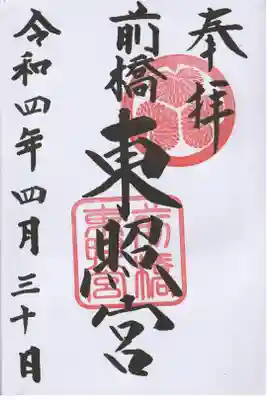 奉拝
前橋
東照宮
令和四年四月三十日
前橋
東照宮